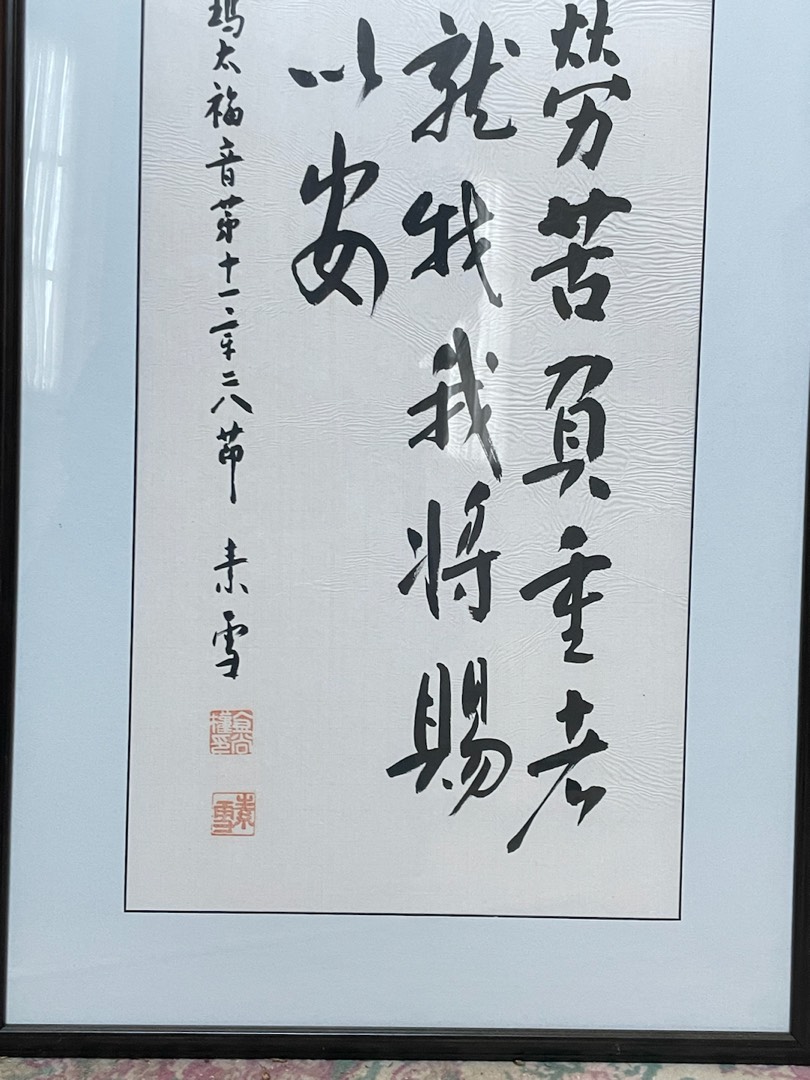 勞苦負重者
就我我將賜
以安
瑪太福音第十一章二八節 素雪
素雪